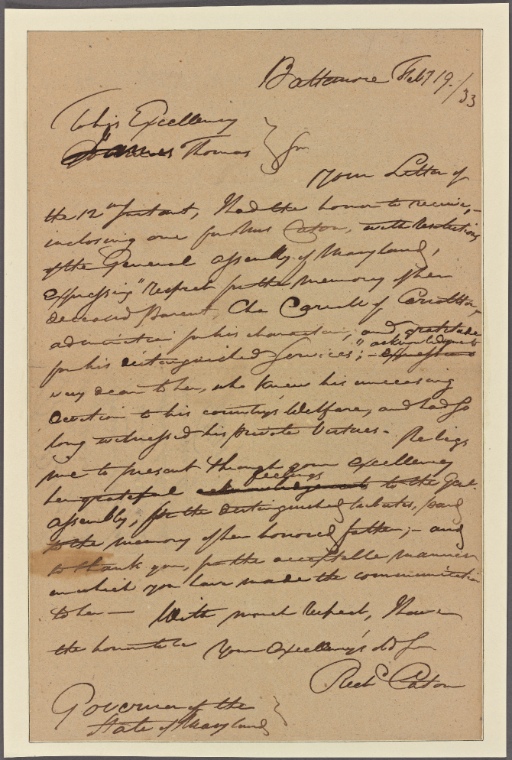 Baltimore Feby 19./33
To his Excellency
James Thomas } Sir
Your Letter of
the 12th Instant, I had the honor to receive,
inclosing one for Mrs Caton, with resolutions
of the General Assembly of Maryland,
expressing "respect for the memory of her
deceased Parent, Cha Carroll of Carrollton,
admiration for his character, and gratitude
for his distinguished Services"; - acknowledgments
very dear to her, who knew his unceasing
devotion to his country's Welfare, and had so
long witnessed his private Virtues. - She begs
me to present through your Excellency
her grateful feelings to the Genl.
Assembly, for the distinguished tributes, paid
to the memory of her honored father; - and
to thank you, for the acceptable manner
in which you have made the communication
to her - With much respect, I have
the honor to be Your Excellency's obt Sr
Richd Caton
Governor of the
State of Maryland }